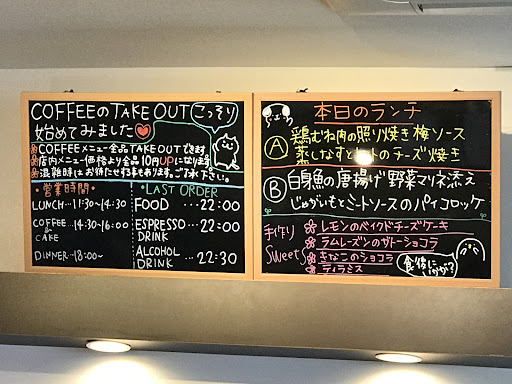 COFFEEのTAKE OUT こっそり
始めてみました
COFFEEメニュー全品TAKE OUTできます
店内メニュー価格より全品10円UPになります
混雑時はお待たせする事もあります。ご了承下さい。
・営業時間・
LUNCH…11:30~14:30
COFFEE & CAKE …14:30~16:00
DINNER…18:00~
・LAST ORDER
FOOD …22:00
ESPRESSO DRINK …22:00
ALCOHOL DRINK …22:30
本日のランチ
A 鶏むね肉の照り焼き梅ソース
蒸しなすと のチーズ焼き
B 白身魚の唐揚げ野菜マリネ添え
じゃがいもとミートソースのパイコロッケ
手作り Sweets
レモンのベイクドチーズケーキ
ラムレーズンのガトーショコラ
きなこのショコラ
ティラミス
食後にいかが?